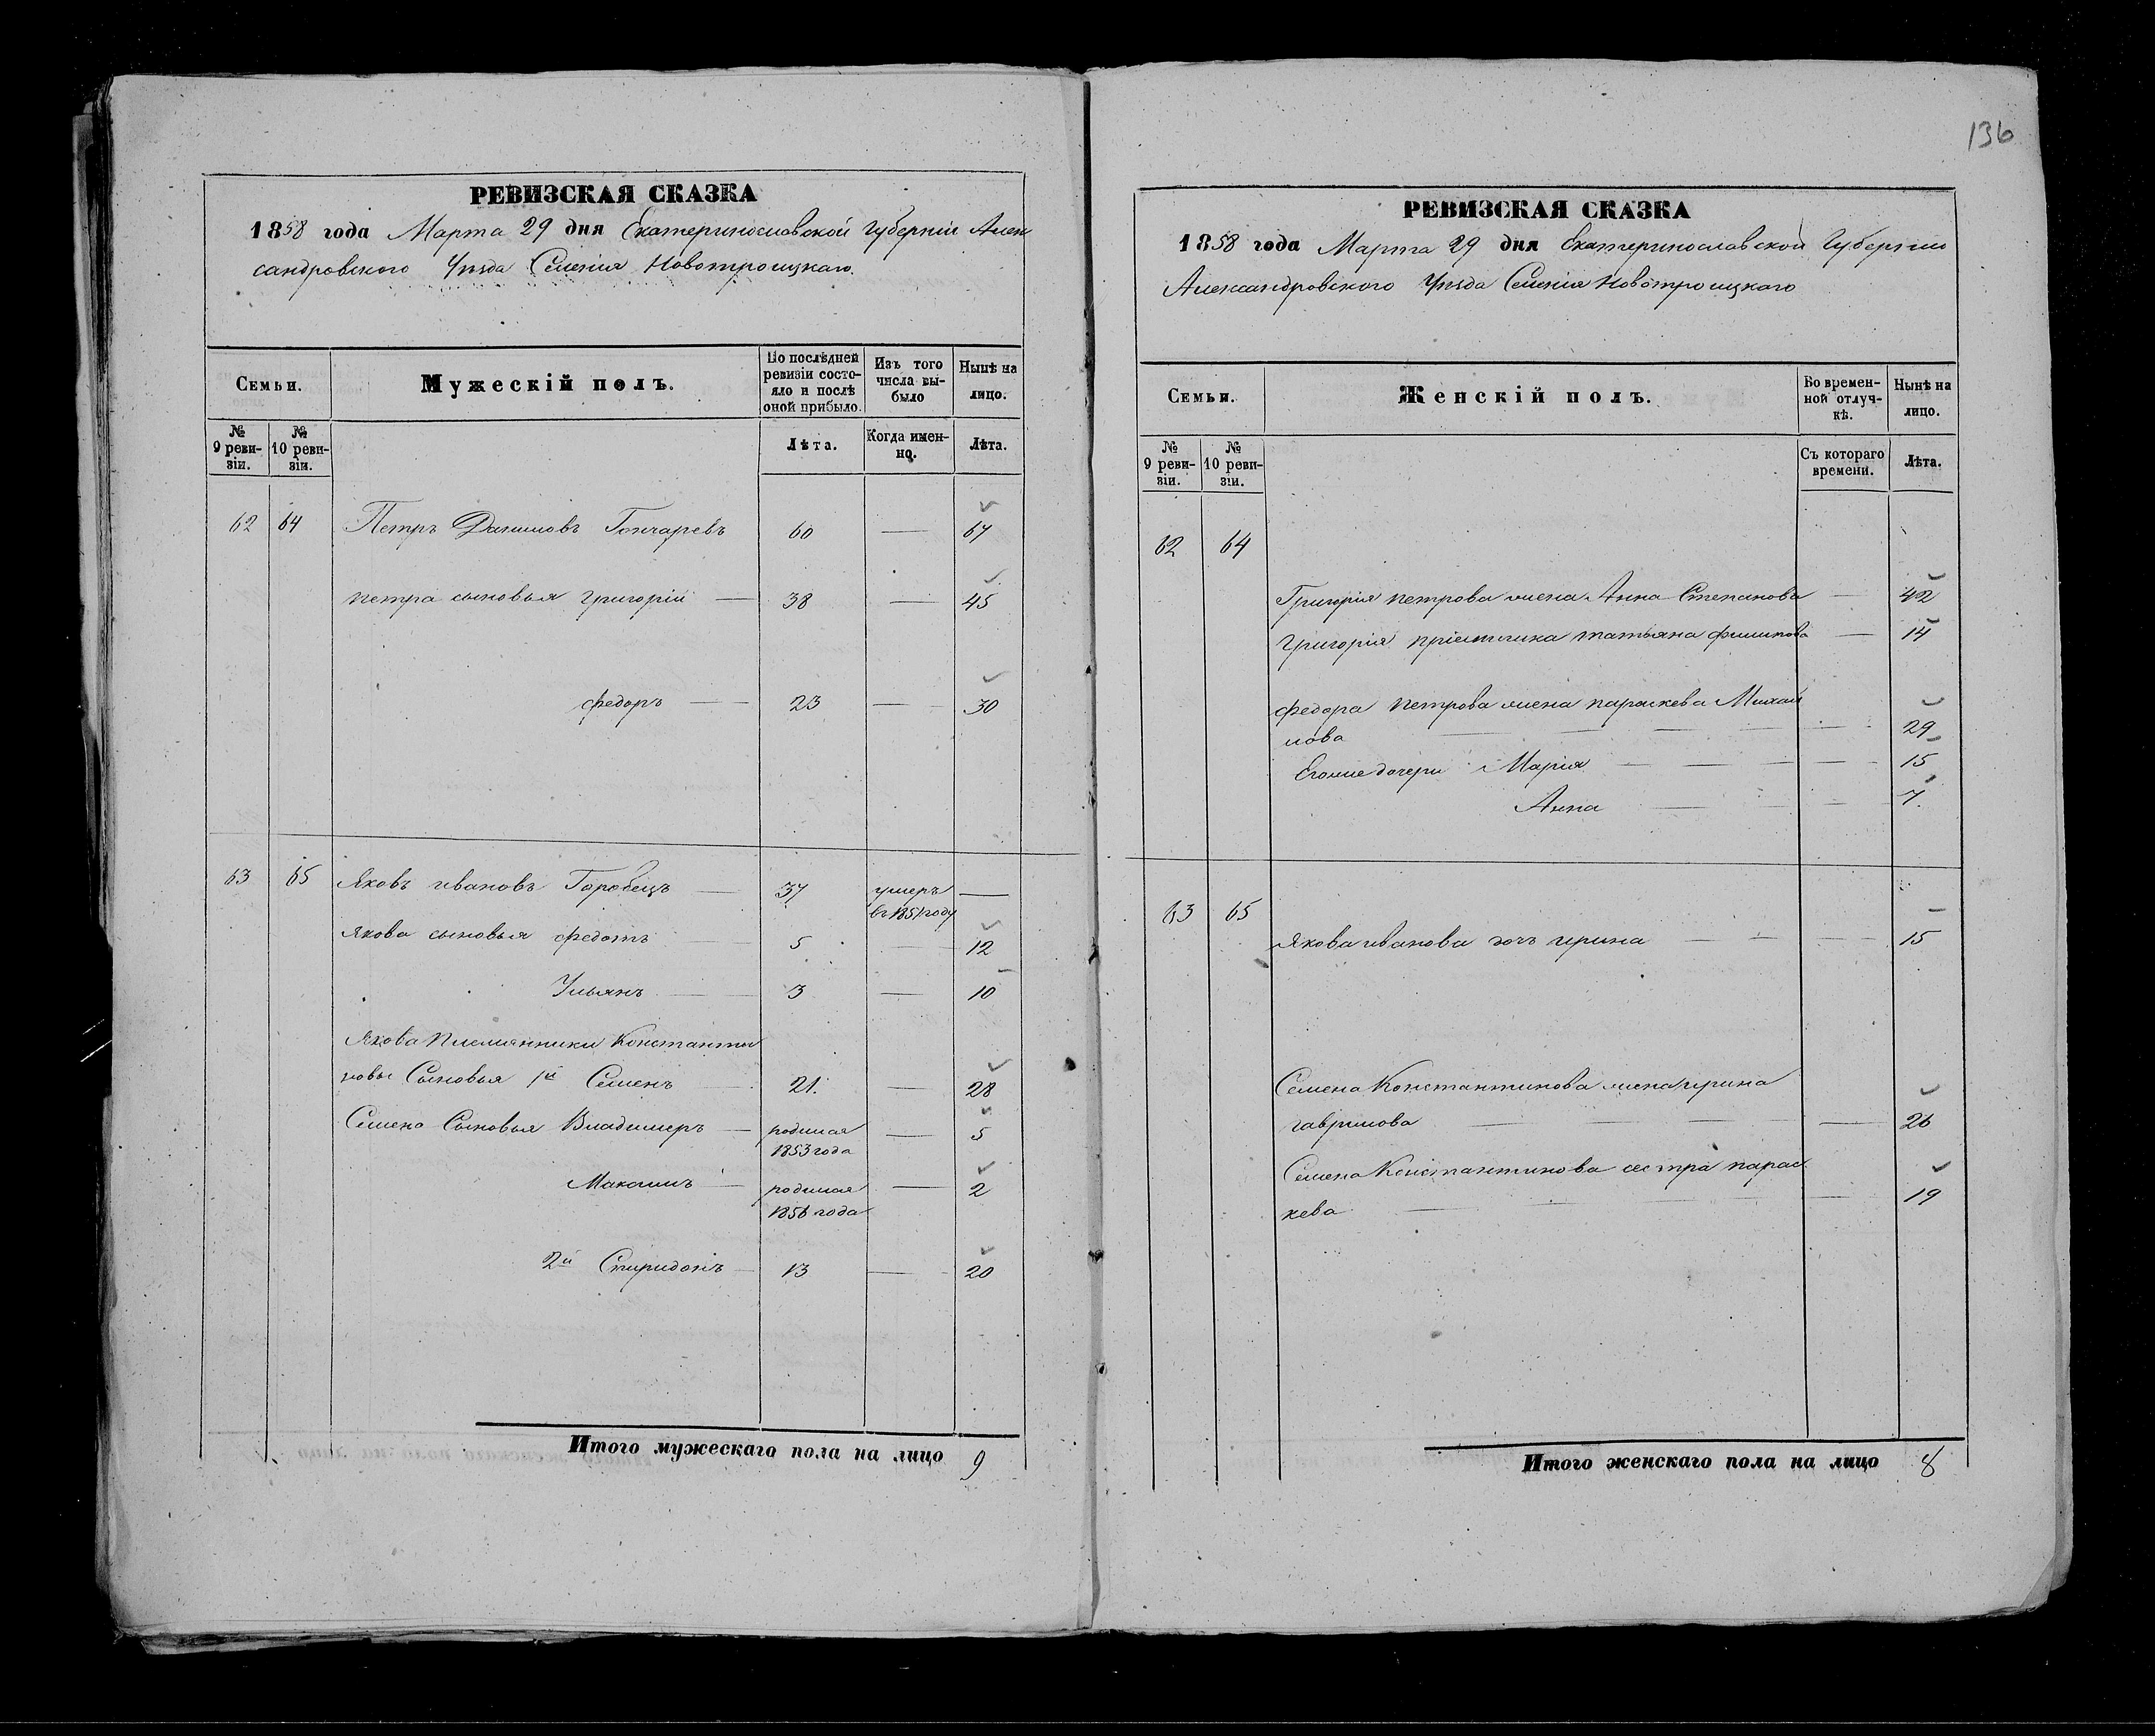 РЕВИЗСКАЯ СКАЗКА
1858 года Марта 29 дня Екатеринославской Губерніи Алек
сандровского Уѣзда Селенія Новотроицкаго.
Семьи.
Мужескій полъ.
По послѣдней ревизіи состояло и послѣ оной прибыло.
Изъ того числа выбыло
Нынѣ на лицо.
№ 9 ревизіи.
№ 10 ревизіи.
Лѣта.
Когда именно.
Лѣта.
62 64 Петръ Даниловъ Гончаревъ 60 — 67
петра сыновья григорій — 38 — 45
федоръ — 23 — 30
63 65 Яковъ ивановъ Горобецъ — 37 умеръ —
въ 1851 году
якова сыновья федотъ 5 — 12
Ульянъ — 3 — 10
Якова племянники Константи
новы Сыновья 1й Семенъ 21. — 28
Семена Сыновья Владимеръ — родился — 5
1853 года
Максимъ — родился — 2
1856 года
2й Спиридонъ — 13 — 20
Итого мужескаго пола на лицо 9
136
РЕВИЗСКАЯ СКАЗКА
1858 года Марта 29 дня Екатеринославской Губерніи
Александровского Уѣзда Селенія Новотроицкаго
Семьи.
Женскій полъ.
Во временной отлучкѣ.
Нынѣ на лицо.
№ 9 ревизіи.
№ 10 ревизіи.
Съ котораго времени.
Лѣта.
62 64
Григорія петрова жена Анна Степанова — 42
григорія пріемшика татьяна филипова — 14
федора петрова жена параскева Михай
лова — — — — 29
Егоже дочери Марія — — — — 15
Анна — — — 7.
63 65
якова иванова дочь ирина — — — 15
Семена Константинова жена ирина
гаврилова — — — — 26
Семена Константинова сестра парас
кева — — — 19
Итого женскаго пола на лицо 8